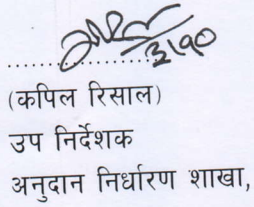 ....................
(कपिल रिसाल)
उप निर्देशक
अनुदान निर्धारण शाखा,